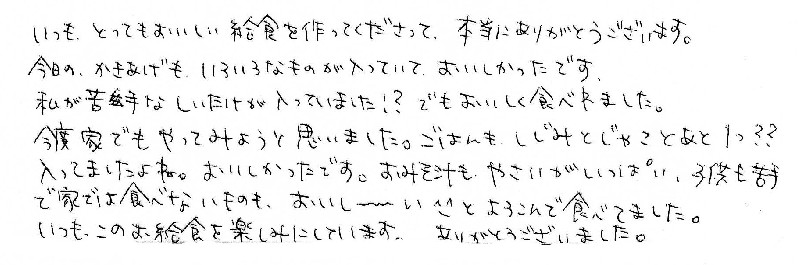 いつも、とってもおいしい給食を作ってくださって、本当にありがとうございます。
今日の、かきあげも、いろいろなものが入っていて、おいしかったです、
私が苦手なしいたけが入っていました!? でもおいしく食べれました。
今度家でもやってみようと思いました。ごはんも、しじみとじゃことあと1つ??
入ってましたよね。おいしかったです。おみそ汁も、やさいがいっぱい、子供も苦手
で家では食べないものも、おいし〜〜い ^^ と よろこんで食べてました。
いつも、この給食を楽しみにしています。 ありがとうございました。